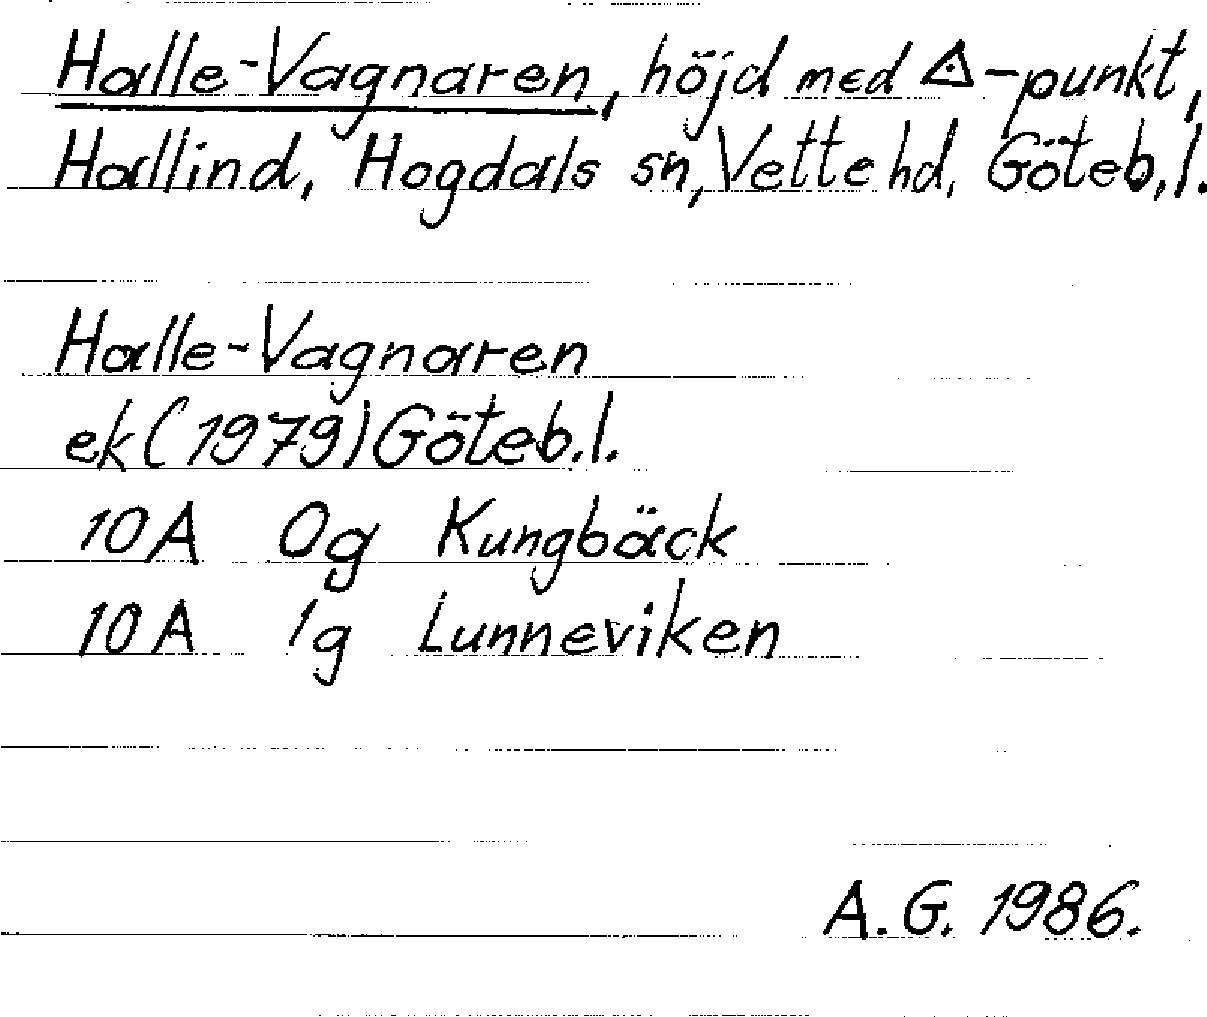 Halle-Vagnaren, höjd med △-punkt,
Hallind, Hogdals sn, Vette hd, Göteb.l.
Halle-Vagnaren
ek (1979) Göteb.l.
10A 0g Kungbäck
10A 1g Lunneviken
A.G. 1986.